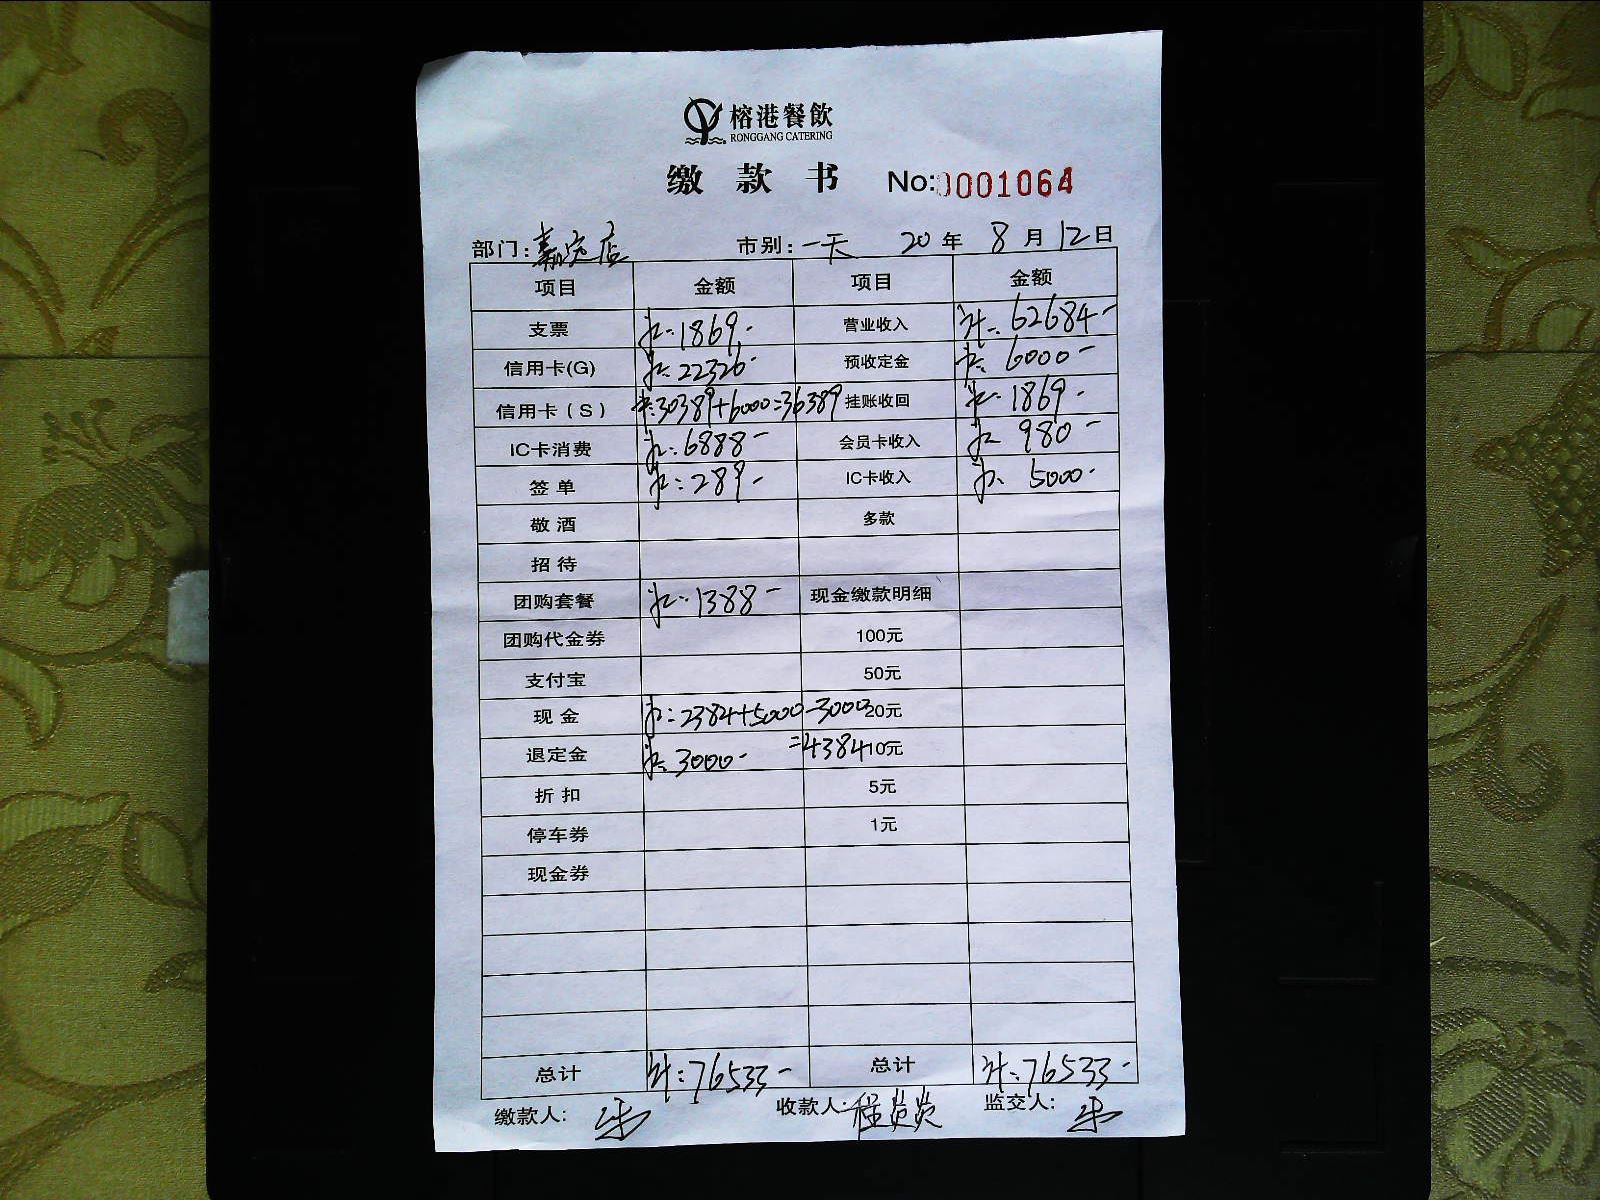 榕港餐飲
RONGGANG CATERING
缴款书 No:0001064
部门:嘉定店 市别:一天 20年8月12日
项目 金额 项目 金额
支票 1869.- 营业收入 计:62684-
信用卡(G) 22326- 预收定金 6000-
信用卡(S) 30389+6000=36389 挂账收回 1869.-
IC卡消费 6888- 会员卡收入 980-
签单 289.- IC卡收入 5000.-
敬酒 多款
招待
团购套餐 1388- 现金缴款明细
团购代金券 100元
支付宝 50元
现金 2384+5000-3000 20元
退定金 3000.- =4384 10元
折扣 5元
停车券 1元
现金券
总计 计:76533- 总计 计:76533-
缴款人: 收款人: 监交人: